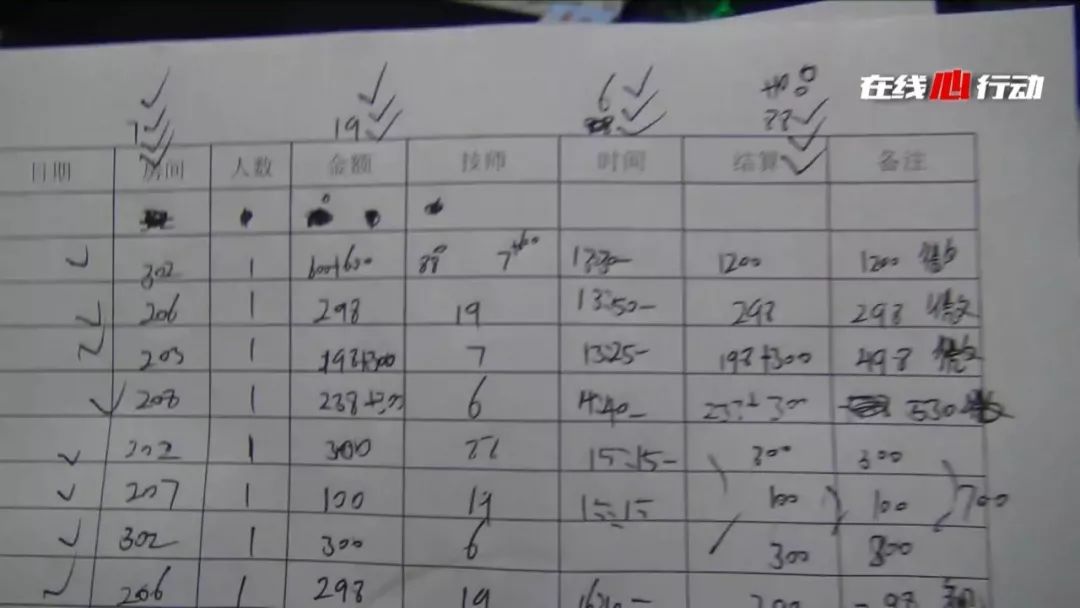 在线心行动
7 19 6
日期 房间 人数 金额 技师 时间 结算 备注
302 1 600+600 7 13:30- 1200 1200
206 1 298 19 13:50- 298 298
203 1 198+300 7 13:25- 198+300 498
208 1 238+300 6 530
202 1 300 22 15:15- 300 300
207 1 100 19 15:15 100 100 700
302 1 300 6 300 300
206 1 298 19